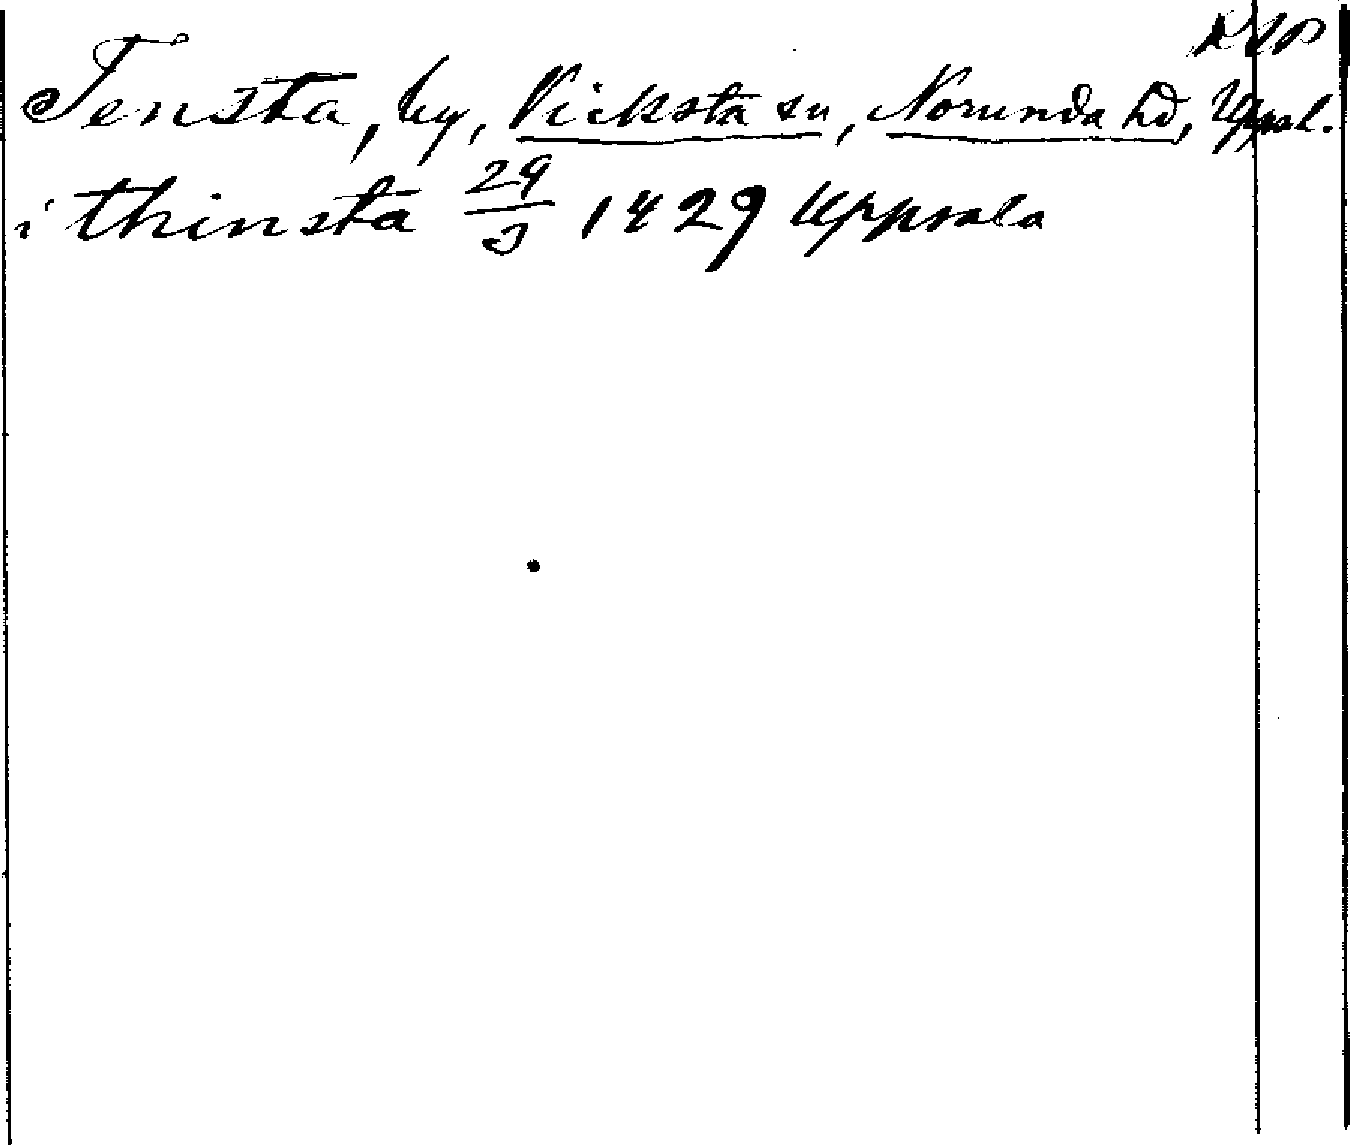 RAP
Tensta, by, Vicksta sn, Norunda hd, Uppsal.
i thinsta 29/3 1429 Uppsala